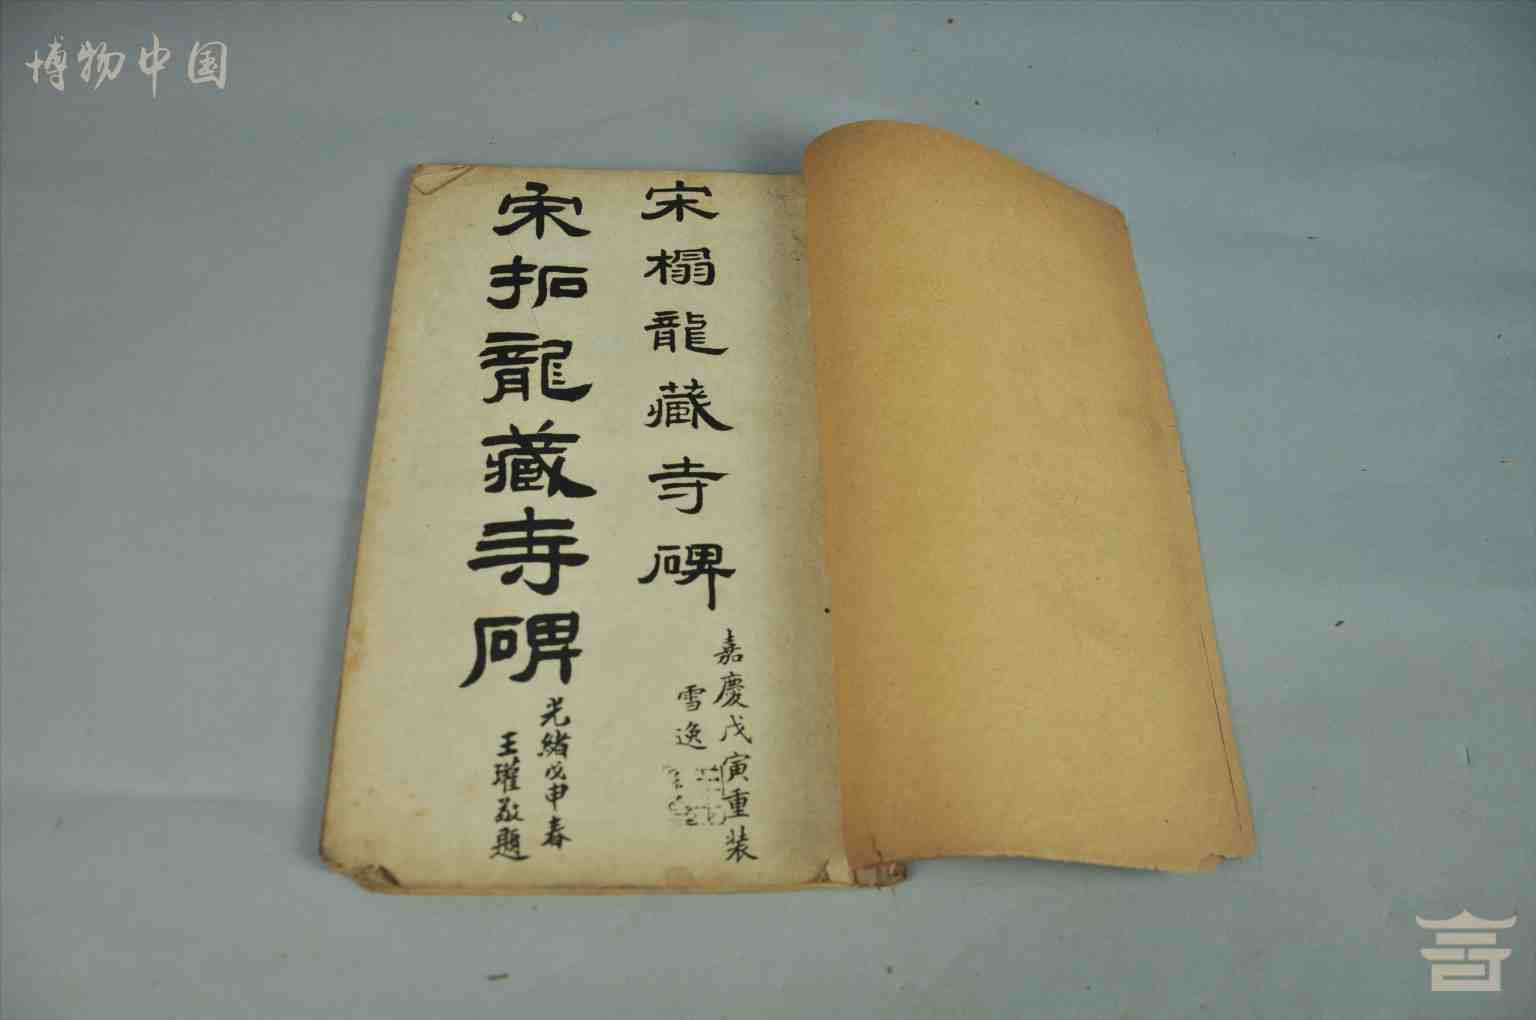 博物中国
宋榻龍藏寺碑
嘉慶戊寅重装
雪逸
宋拓龍藏寺碑
光緒戊申春
王瓘敬題